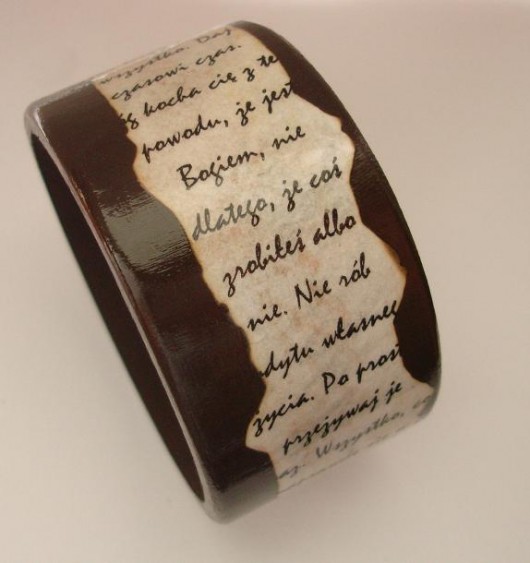 wszystko. Daj
czasowi czas.
óg kocha cię z te
powodu, że jest
Bogiem, nie
dlatego, że coś
zrobiłeś albo
nie. Nie rób
dytu własneg
życia. Po prost
przeżywaj je
az. Wszystko, co